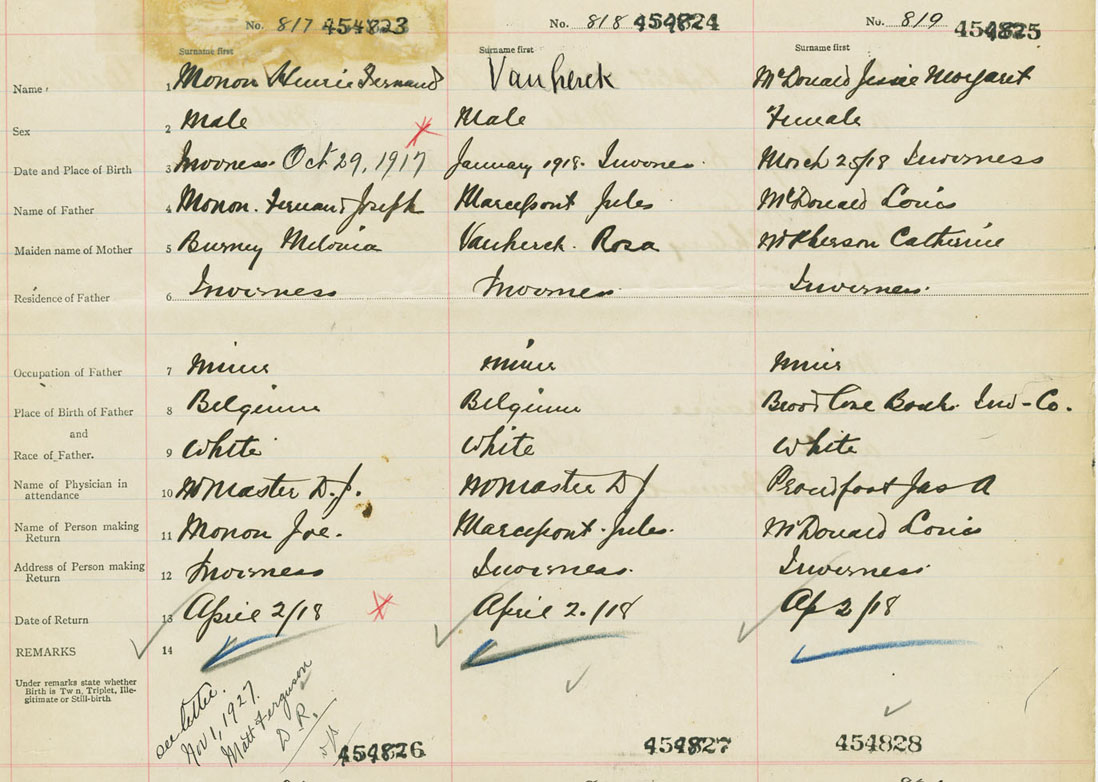 No. 817 454823
No. 818 454824
No. 819 454825
Surname first
Surname first
Surname first
Name 1 Monon Henrie Fernand Vanherck McDonald Jessie Margaret
Sex 2 Male Male Female
Date and Place of Birth 3 Inverness Oct 29, 1917 January 1918. Inverness. March 25/18 Inverness
Name of Father 4 Monon. Fernand Joseph Marcepont Jules McDonald Louis
Maiden name of Mother 5 Burney Melonia Vanherck. Rosa McPherson Catherine
Residence of Father 6 Inverness Inverness Inverness.
Occupation of Father 7 Miner Miner Miner
Place of Birth of Father 8 Belgium Belgium Broad Cove Inv-Co.
and
Race of Father. 9 White White White
Name of Physician in
attendance 10 McMaster D.J. McMaster D J Proudfoot Jas A
Name of Person making
Return 11 Monon Joe. Marcepont Jules. McDonald Louis
Address of Person making
Return 12 Inverness Inverness. Inverness.
Date of Return 13 April 2/18 April 2./18 Ap 2/18
REMARKS 14
Under remarks state whether
Birth is Tw n, Triplet, Ille-
gitimate or Still-birth
see letter.
Nov 1, 1927.
Matt Ferguson
D. R.
454826
454827
454828